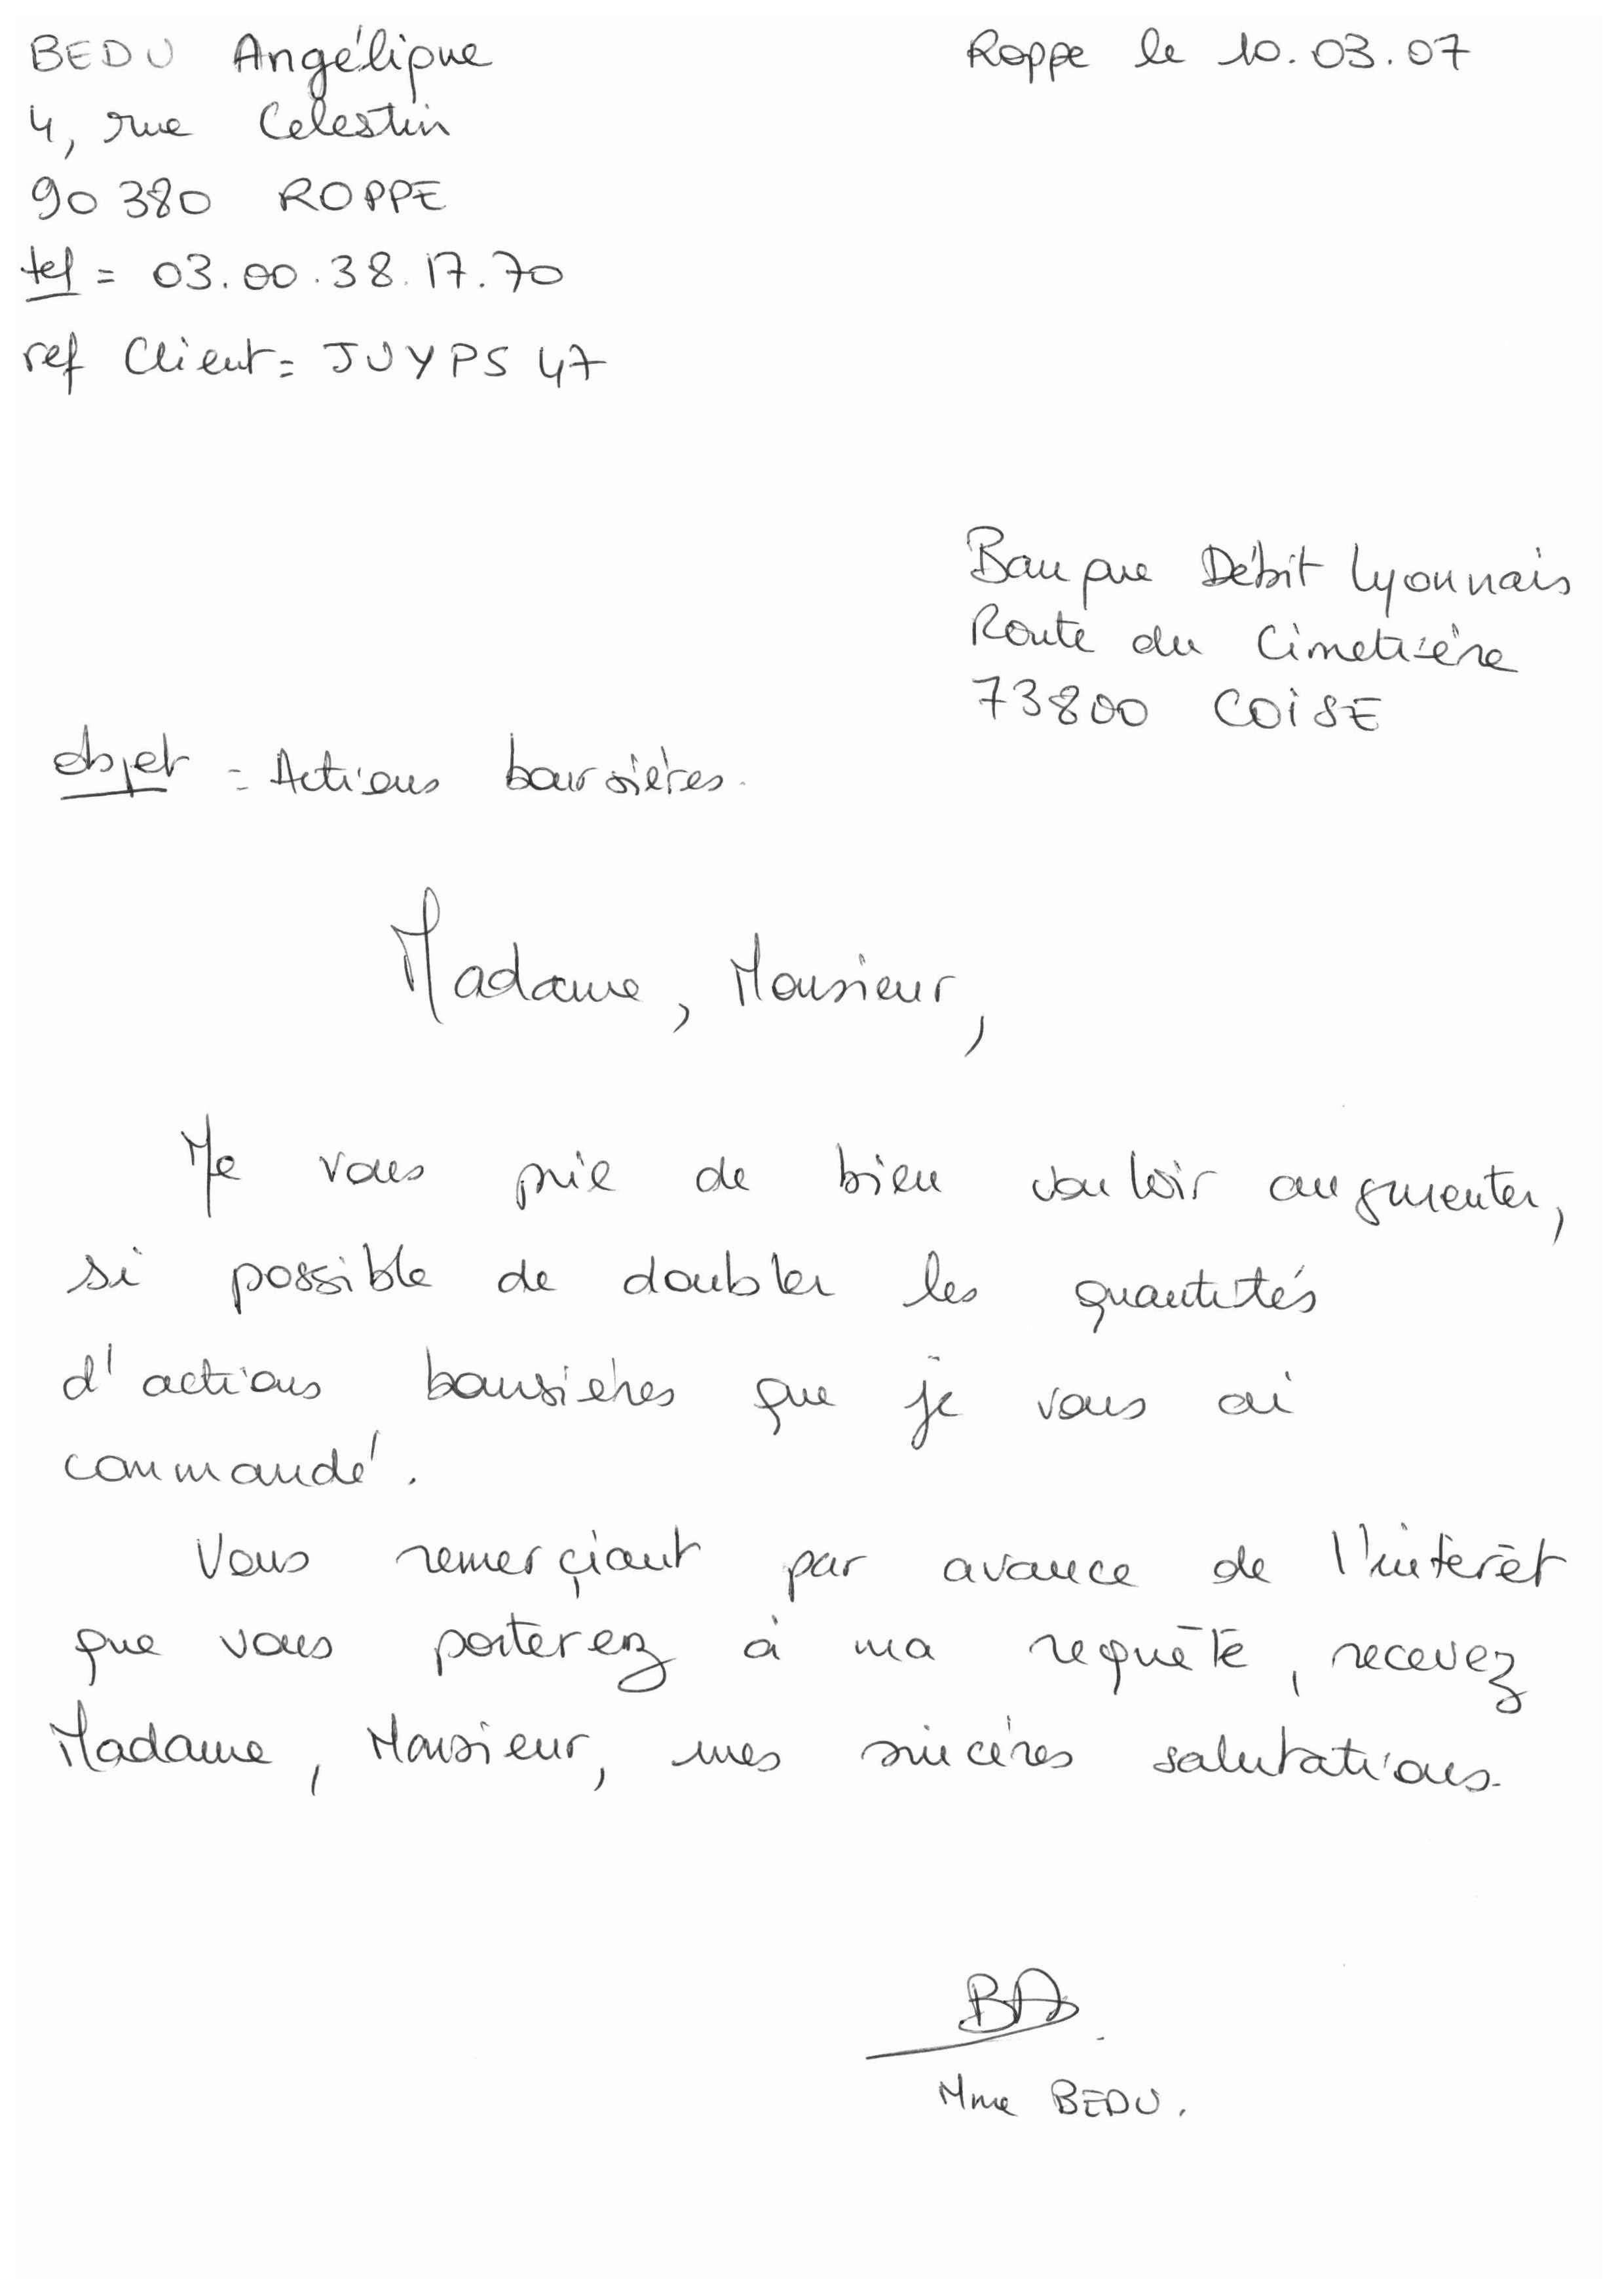 BEDU Angélique
4, rue Celestin
90 380 ROPPE
tel = 03.00.38.17.70
ref Client = JUYPS 47
Roppe le 10.03.07
Banque Débit Lyonnais
Route du Cimetière
73800 COISE
objet = Actions boursières.
Madame, Monsieur,
Je vous prie de bien vouloir augmenter,
si possible de doubler les quantités
d'actions boursières que je vous ai
commandé.
Vous remerçiant par avance de l'intérèt
que vous porterez à ma requête, recevez
Madame, Monsieur, mes sincères salutations.
BA
Mme BEDU.